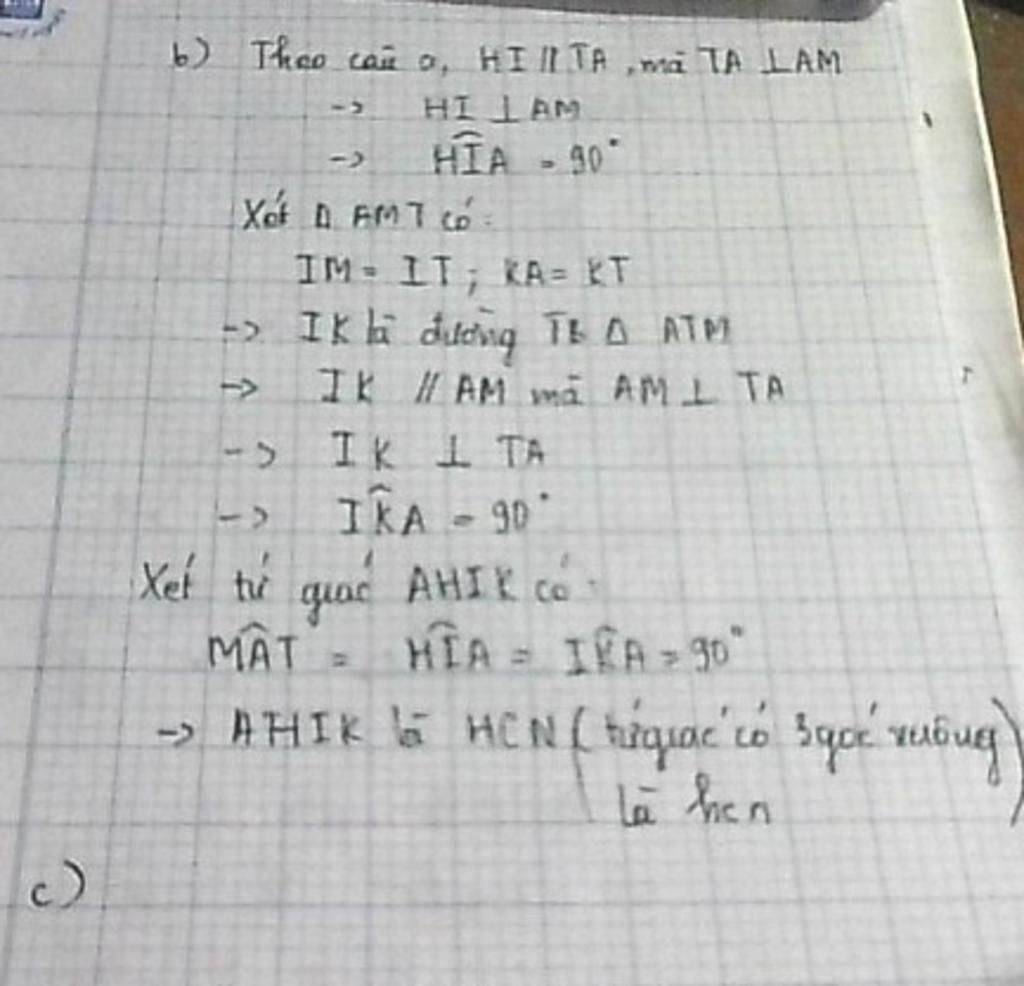 b) Theo câu a, HI // TA, mà TA ⊥ AM
-> HI ⊥ AM
-> HÎA = 90°
Xét Δ AMT có:
IM = IT; KA = KT
-> IK là đường TB Δ ATM
-> IK // AM mà AM ⊥ TA
-> IK ⊥ TA
-> IK̂A = 90°
Xét tứ giác AHIK có:
MÂT = HÎA = IK̂A = 90°
-> AHIK là HCN (tứ giác có 3 góc vuông
là hcn)
c)